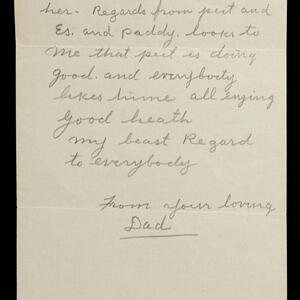 her. Regards from peit and
Es. and paddy. looks to
me that peit is doing
good. and everybody
likes hime all enying
Good heath
my beast Regard
to everybody
From your loving
Dad